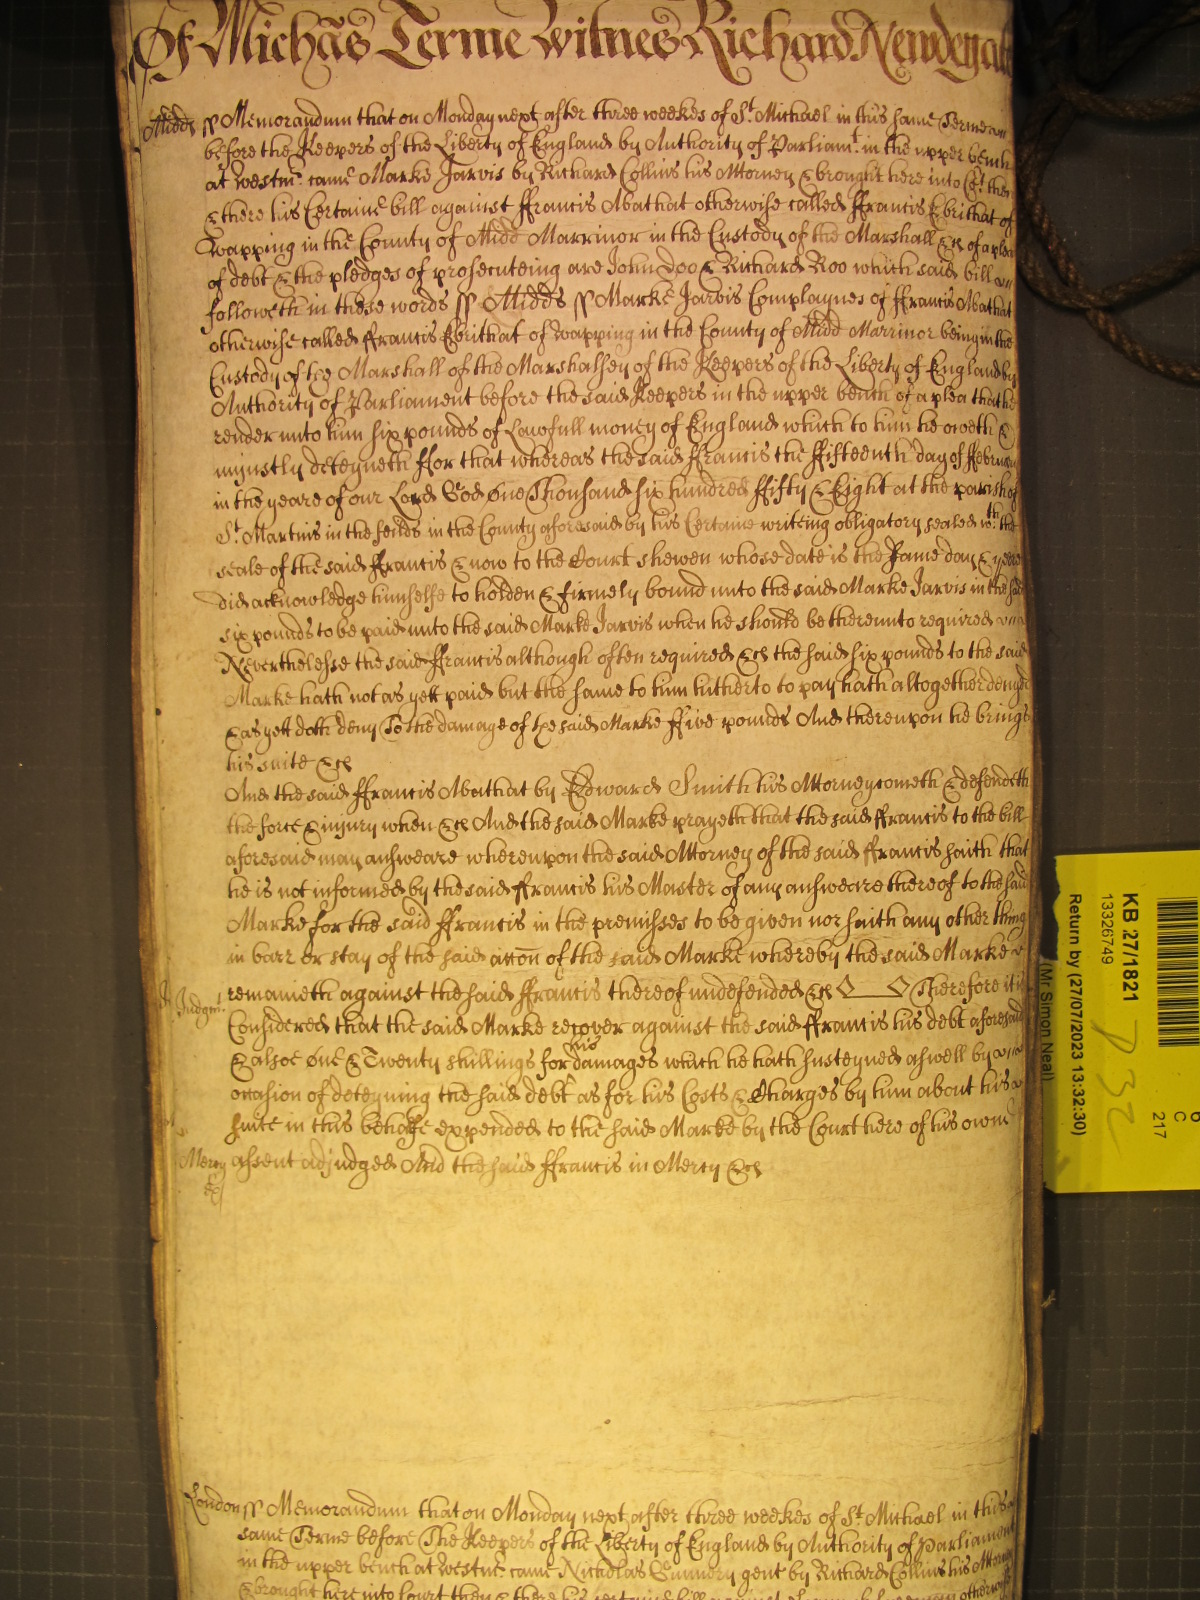 Of Michās Terme Witnes Richard Newdegat
Midds ss Memorandum that on Monday next after three weekes of St. Michael in this same Terme
before the Keepers of the Liberty of England by Authority of Parliamt. in the upper bench
at Westmr. came Marke Jarvis by Richard Collins his Attorney & brought here into Ct. then
& there his Certaine bill against ffrancis Abathat otherwise called ffrancis Ebrithat of
Wapping in the County of Midd Marrinor in the Custody of the Marshall &c of a plea
of debt & the pledges of prosecuteing are John Doo & Richard Roo which said bill
followeth in these words ss Midds ss Marke Jarvis Complaynes of ffrancis Abathat
otherwise called ffrancis Ebrithat of Wapping in the County of Midd Marrinor being in the
Custody of the Marshall of the Marshalsey of the Keepers of the Liberty of England by
Authority of Parliament before the said Keepers in the upper bench of a plea that he
render unto him six pounds of Lawfull money of England which to him he oweth &
unjustly deteyneth ffor that whereas the said ffrancis the ffifteenth day of ffebruary
in the yeare of our Lord God One Thousand six hundred ffifty & Eight at the parish of
St. Martins in the feilds in the County aforesaid by his Certaine writeing obligatory sealed wth. the
seale of the said ffrancis & now to the Court shewen whose date is the same day & yeare
did acknowledge himselfe to holden & firmely bound unto the said Marke Jarvis in the said
six pounds to be paid unto the said Marke Jarvis when he should be thereunto required
Neverthelesse the said ffrancis although often required &c the said six pounds to the said
Marke hath not as yett paid but the same to him hitherto to pay hath altogether denyed
& as yett doth deny To the damage of the said Marke ffive pounds And thereupon he brings
his suite &c
And the said ffrancis Abathat by Edward Smith his Attorney cometh & defendeth
the force & injury when &c And the said Marke prayeth that the said ffrancis to the bill
aforesaid may answeare whereupon the said Attorney of the said ffrancis saith that
he is not informed by the said ffrancis his Master of any answeare thereof to the said
Marke for the said ffrancis in the premisses to be given nor saith any other thing
in barr or stay of the said accōn of the said Marke whereby the said Marke
Judgmt. remaineth against the said ffrancis thereof undefended &c Therefore it is
Considered that the said Marke recover against the said ffrancis his debt aforesaid
& alsoe One & Twenty shillings for his damages which he hath susteyned aswell by
occasion of deteyning the said debt as for his Costs & Charges by him about his
suite in this behalfe expended to the said Marke by the Court here of his owne
Mercy assent adjudged And the said ffrancis in Mercy &c
&c
London ss Memorandum that on Monday next after three weekes of St. Michael in this
same Terme before The Keepers of the Liberty of England by Authority of Parliament
in the upper bench at Westmr. came Nicholas gent by Richard Collins his Attorney
& brought here into Court then & there his certaine bill against otherwise
KB 27/1821
13326749
Return by (27/07/2023 13:32:30)
(Mr Simon Neal)
C
217